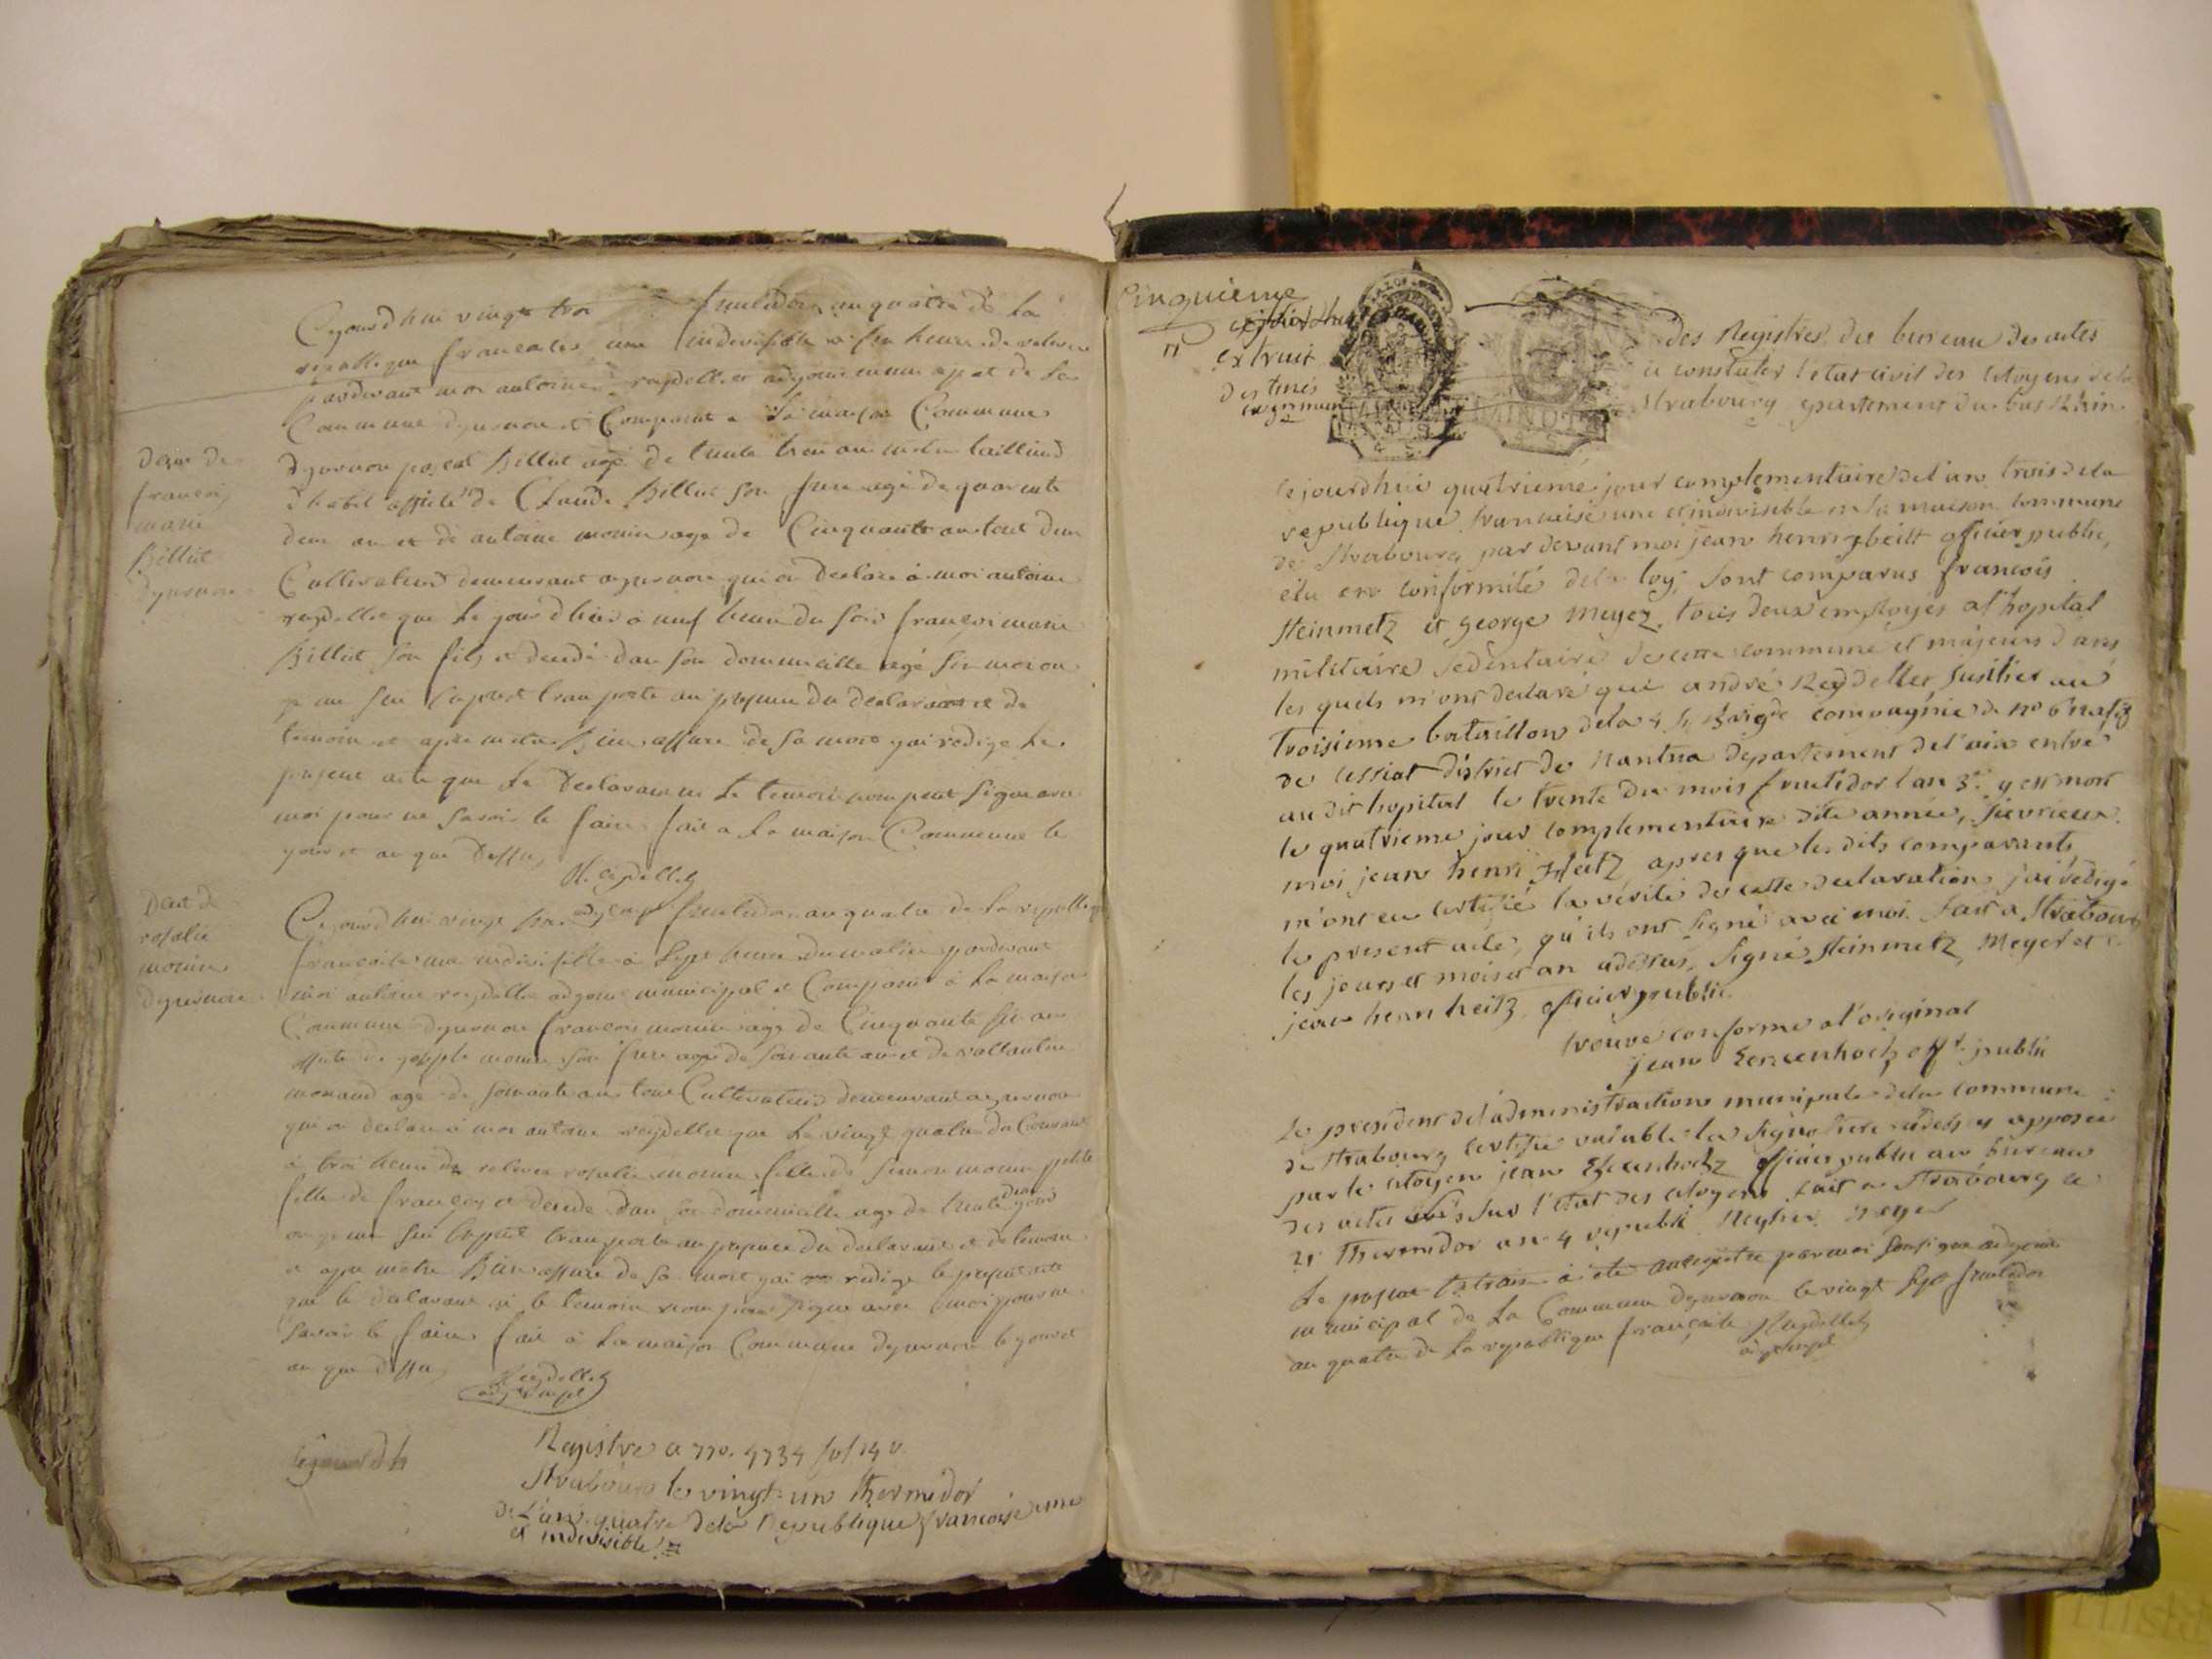 Cejourd hui vingt troi fructidor an quatre de la
repablique francaise une indivisible a six heure de relevee
pardevant moi antoine reydellet adjoint municipal de la
Commune dyzernore et Comparut a la maison Commune
dyzernore pascal Billut agé de trente trois an metier tailleur
d habit assisté de Claude Billut son frere agé de quarente
deux an et de antoine monin age de Cinquante an tout deux
Cultivateurs demeurant a yzernore qui a declare à moi antoine
reydellet que le jour d huis à neuf heure du soir françoi marie
Billut son fils et decede dan son dommicille agé six moi on
je me sui la pret transporte au presence du declarant et de
temoin et apre metre Bien assure de sa mort j'ai redige le
present acte que le declarant ni le temoin nom peut signe avec
moi pour ne savoir le faire fait a la maison Commune le
jour et an que dessus
Reydellet
adj mpl
deces de
francois
marie
Billut
dyzernore
Cejourd hui vingt six fructidor an quatre de la repablique
francaise une indivisible à sept heure du matin pardevant
moi antoine reydellet adjoint municipal et Comparut à la maison
Commune dyzernore francois monin age de Cinquante six an
assisté de joseph monin son frere agé de soixante an et de
monand agé de soixante an tous Cultivateurs demeurant a yzernore
qui a declare à moi antoine reydellet que le vingt quatre du Courant
à troi heure de relevee rosalie monin fille de simon monin petite
fille de françois et decede dan son domicille age de trente deux jours
on je me sui la pret transporte au presence du declarant et de temoin
et apre metre Bien assure de sa mort j'ai redige le present acte
que le declarant ni le temoin nom peut signe avec moi pour ne
savoir le faire fait à la maison Commune dyzernore le jour et
an que dessus
Reydellet
adj mpl
Decet de
rosalie
monin
dyzernore
Cejourd h
Registre a no. 4734 fol 14 v.
Strabourg le vingt-un thermidor
de L'an quatre dela Republique francoise une
et indivisible
Cinquieme
cejourdhui
extrait
des tinés
des Registres du bureau des actes
a constater l'etat civil des citoyens dela
Strabourg epartement du bas Rhin
cejourdhui quatrieme jour complementaire del'an trois dela
republique francaise une et indivisible en la maison commune
de Strabourg par devant moi jean henri heitz officier public,
élu en conformité dela loy, sont comparus francois
Steinmetz et george meyer, tous deux employés al'hopital
militaire sedentaire de cette commune et majeurs d'ans
les quels m'ont declaré que andré Reydellet fusilier au
troisieme bataillon dela 4 brigde compagnie de no 6 natif
de cessiat district de Nantua departement de l'ain entré
au dit hopital le trente du mois fructidor l an 3e. y est mort
le quatrieme jour complementaire dite année, fievrieux
moi jean henri heitz apres que les dits comparants
m'ont eu certifié la vérité de cette declaration j'ai rédigé
le present acte, qu'ils ont signé avec moi. fait a Strabourg
les jours et mois et an adessus, signé Steinmetz, Meyer et
jean henri heitz officier public.
trouvé conforme al'original
jean public
le president del'administration municipale dela commune
de Strabourg certifie valable la signature adess y apposée
par le citoyen jean officier public au bureau
des actes sur l'etat des citoyens fait a Strabourg le
21 Thermidor an 4 republi
le present extrait à eté par moi sousigne adjoint
municipal de la Commune dyzernore le vingt sept fructidor
an quatre de la repablique française Reydellet
adj mpl